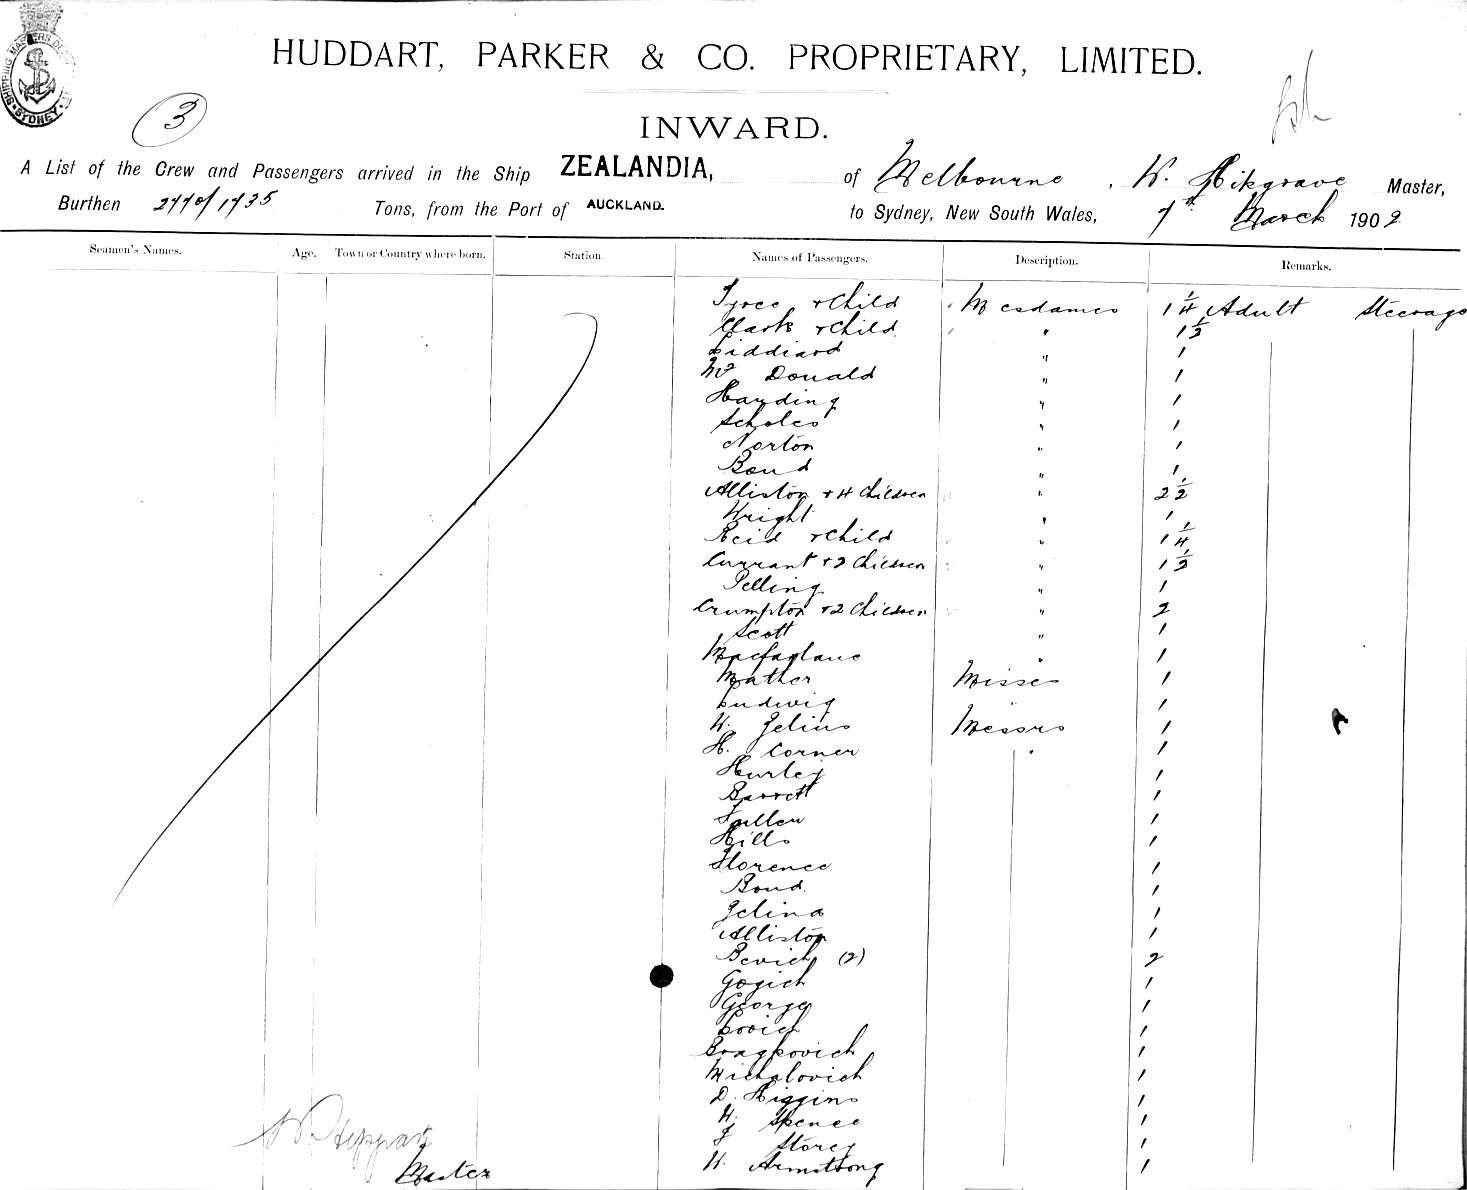 SHIPPING MASTERS
SYDNEY
HUDDART, PARKER & CO. PROPRIETARY, LIMITED.
3
INWARD.
A List of the Crew and Passengers arrived in the Ship ZEALANDIA, of Melbourne, W. Master,
Burthen 1735 Tons, from the Port of AUCKLAND. to Sydney, New South Wales, 7th March 1902
Seamen's Names. Age. Town or Country where born. Station. Names of Passengers. Description. Remarks.
Tyree + Child Mesdames 1 1/4 Adult Steerage
Clark + Child " 1 1/2
Liddiard " 1
Mc Donald " 1
Harding " 1
Scholes " 1
Norton " 1
Bond " 1
Alliston + 4 Children " 2 1/2
Wright " 1
Reid + Child " 1 1/4
Currant + 2 Children " 1 1/2
Pelling " 1
Crumpton + 2 Children " 2
Scott " 1
Macfarlane " 1
Mather Misses 1
Ludwig " 1
W. Zelius Messrs 1
H. Corner " 1
Hurley 1
Barrett 1
Fullen 1
Hills 1
Florence 1
Bond 1
Zelina 1
Alliston 1
Bevich (2) 2
Gogich 1
George 1
Lovich 1
Bragkovich 1
Michalovich 1
D. Higgins 1
W. Spence 1
J Storey 1
W. Armstrong 1
Master